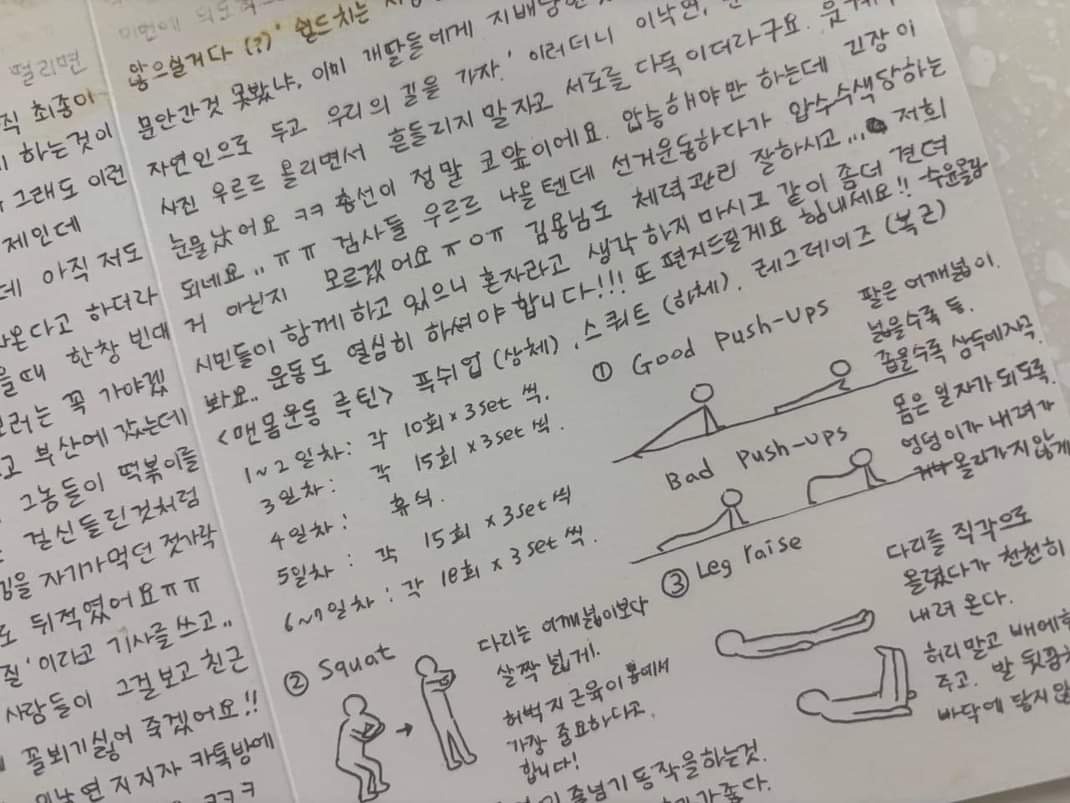 떨리면
직 최종이
하는것이
그래도 이런
제인데
데 아직 저도
나온다고 하더라
을때 한창 빈대
보러는 꼭 가야겠
고 부산에 갔는데
그놈들이 떡볶이를
걸신들린것처럼
김을 자기가먹던 젓가락
도 뒤적였어요ㅠㅠ
질'이라고 기사를 쓰고..
사람들이 그걸보고 친근
꼴뵈기싫어 죽겠어요!!
이낙연 지지자 카톡방에
ㅋㅋㅋ
않으실거다 (?)' 쉴드치는
문안간것 못봤냐, 이미 개딸들에게 지배당한
자연인으로 두고 우리의 길을 가자.' 이러더니 이낙연,
사진 우르르 올리면서 흔들리지 말자고 서로를 다독이더라구요.
눈물났어요 ㅋㅋ 총선이 정말 코앞이에요. 압승해야만 하는데 긴장이
되네요.. ㅠㅠ 검사들 우르르 나올텐데 선거운동하다가 압수수색당하는
거 아닌지 모르겠어요 ㅠㅇㅠ 김용님도 체력관리 잘하시고... 저희
시민들이 함께하고 있으니 혼자라고 생각하지 마시고 같이 좀더 견뎌
봐요.. 운동도 열심히 하셔야 합니다!!! 또 편지드릴게요 힘내세요!!
<맨몸운동 루틴> 푸쉬업 (상체). 스쿼트 (하체). 레그레이즈 (복근)
1~2일차: 각 10회×3set 씩.
3일차: 각 15회×3set 씩.
4일차: 휴식.
5일차: 각 15회 ×3set씩
6~7일차: 각 18회 × 3set 씩.
① Good Push-Ups
팔은 어깨넓이.
넓을수록 등.
좁을수록 삼두에자극.
몸은 일자가 되도록.
Bad Push-Ups
엉덩이가 내려가
거나 올라가지않게
② Squat
다리는 어깨넓이보다
살짝 넓게.
허벅지근육이 몸에서
가장 중요하다고.
합니다!
줄넘기동작을하는것.
가좋다.
③ Leg raise
다리를 직각으로
올렸다가 천천히
내려온다.
허리말고 배에힘
주고. 발 뒷꿈치
바닥에 닿지않